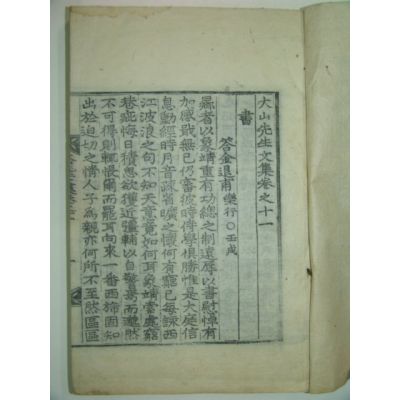 大山先生文集卷之十一
書
答金退甫 樂行○壬戌
曏者以象靖重有功緦之制遠辱以書慰悼有
加感戢無已仍審彼時侍學俱勝惟是大庭信
息動經時月音疎省曠之懷何有窮已每誦西
江波浪之句不知天意竟如何耳象靖索處窮
巷疵悔日積思欲獲近彊輔以自警而邈然
不可得則輒悵爾而罷耳向來一番西旆固知
出於迫切之情人子爲親亦何所不至然區區